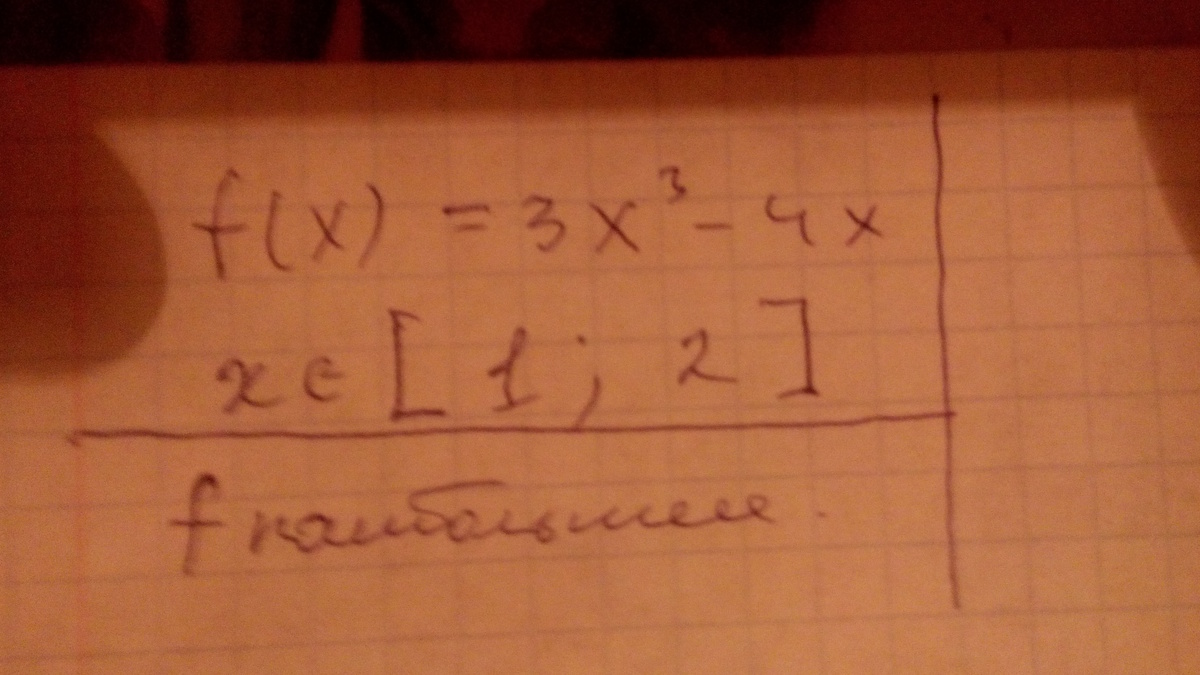 f(x) = 3x³ - 4x
x ∈ [1; 2]
f наибольшее.